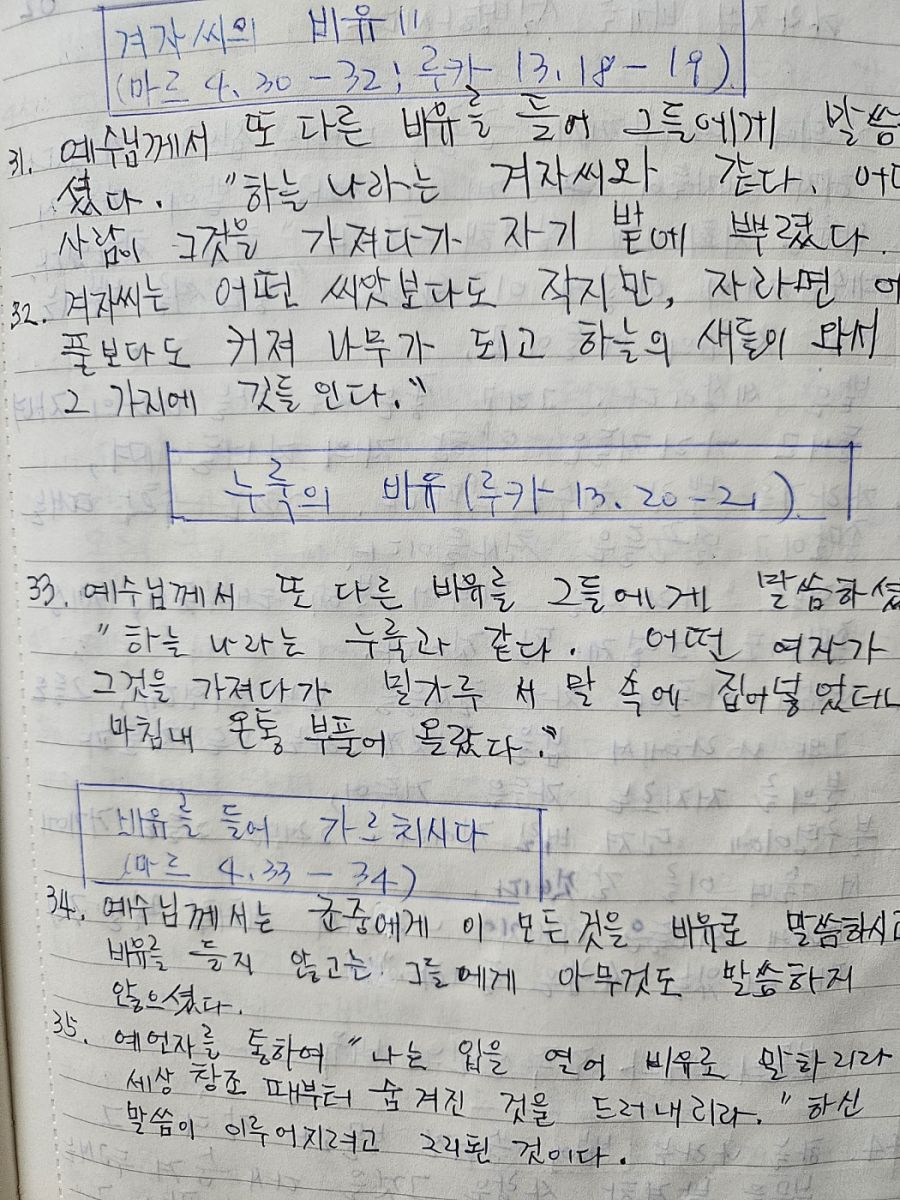 겨자씨의 비유
(마르 4.30-32; 루카 13.18-19).
31. 예수님께서 또 다른 비유를 들어 그들에게 말씀
셨다. "하늘 나라는 겨자씨와 같다. 어떠
사람이 그것을 가져다가 자기 밭에 뿌렸다.
32. 겨자씨는 어떤 씨앗보다도 작지만, 자라면 어
풀보다도 커져 나무가 되고 하늘의 새들이 와서
그 가지에 깃들인다."
누룩의 비유 (루카 13.20-21).
33. 예수님께서 또 다른 비유를 그들에게 말씀하셨
"하늘 나라는 누룩과 같다. 어떤 여자가
그것을 가져다가 밀가루 서 말 속에 집어넣었더니
마침내 온통 부풀어 올랐다."
비유를 들어 가르치시다
(마르 4.33-34)
34. 예수님께서는 군중에게 이 모든것을 비유로 말씀하시고
비유를 들지 않고는 그들에게 아무것도 말씀하지
않으셨다.
35. 예언자를 통하여 "나는 입을 열어 비유로 말하리라
세상 창조 때부터 숨겨진 것을 드러내리라." 하신
말씀이 이루어지려고 그리된 것이다.